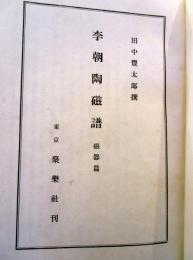 田中豊太郎撰
李朝陶磁譜 磁器篇
東京 聚樂社刊